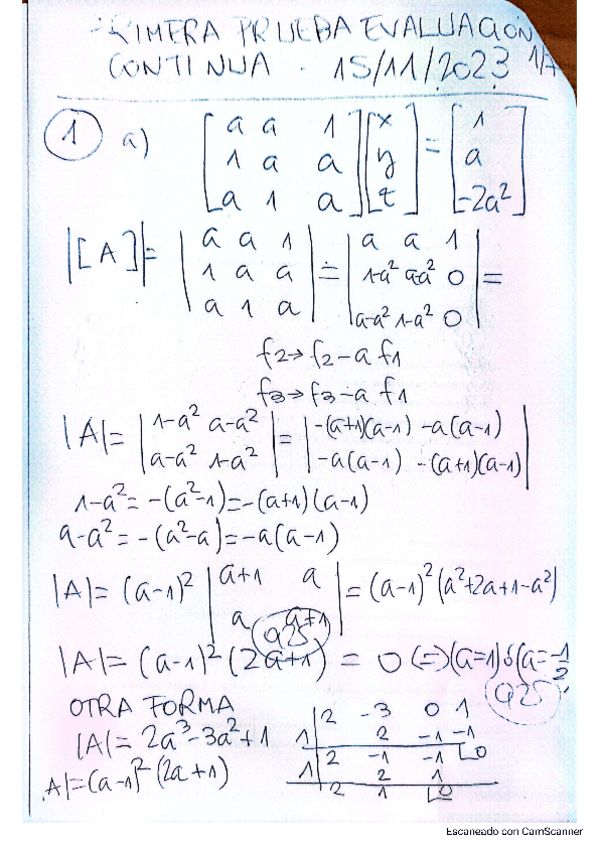 PRIMERA PRUEBA EVALUACIÓN
CONTINUA · 15/11/2023 1/7
1 a) [a a 1; 1 a a; a 1 a] [x; y; z] = [1; a; -2a²]
|[A]| = |a a 1; 1 a a; a 1 a| = |a a 1; 1-a² a-a² 0; a-a² 1-a² 0| =
f2→f2-a f1
f3→f3-a f1
|A| = |1-a² a-a²; a-a² 1-a²| = |-(a+1)(a-1) -a(a-1); -a(a-1) -(a+1)(a-1)|
1-a² = -(a²-1) = -(a+1)(a-1)
a-a² = -(a²-a) = -a(a-1)
|A| = (a-1)² |a+1 a; a a+1| = (a-1)² (a²+2a+1-a²)
0,25
|A| = (a-1)² (2a+1) = 0 ⟺ (a=1) ó (a=-1/2)
0,25
OTRA FORMA
|A| = 2a³-3a²+1
|A| = (a-1)² (2a+1)
2 -3 0 1
1 2 -1 -1
2 -1 -1 0
1 2 1
2 1 0
Escaneado con CamScanner